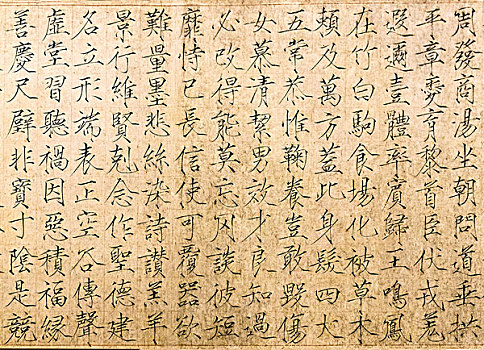 周發商湯坐朝問道垂拱
平章愛育黎首臣伏戎羌
遐邇壹體率賓歸王鳴鳳
在竹白駒食場化被草木
賴及萬方蓋此身髮四大
五常恭惟鞠養豈敢毀傷
女慕清絜男效才良知過
必改得能莫忘罔談彼短
靡恃己長信使可覆器欲
難量墨悲絲染詩讚羔羊
景行維賢剋念作聖德建
名立形端表正空谷傳聲
虛堂習聽禍因惡積福緣
善慶尺璧非寶寸陰是競